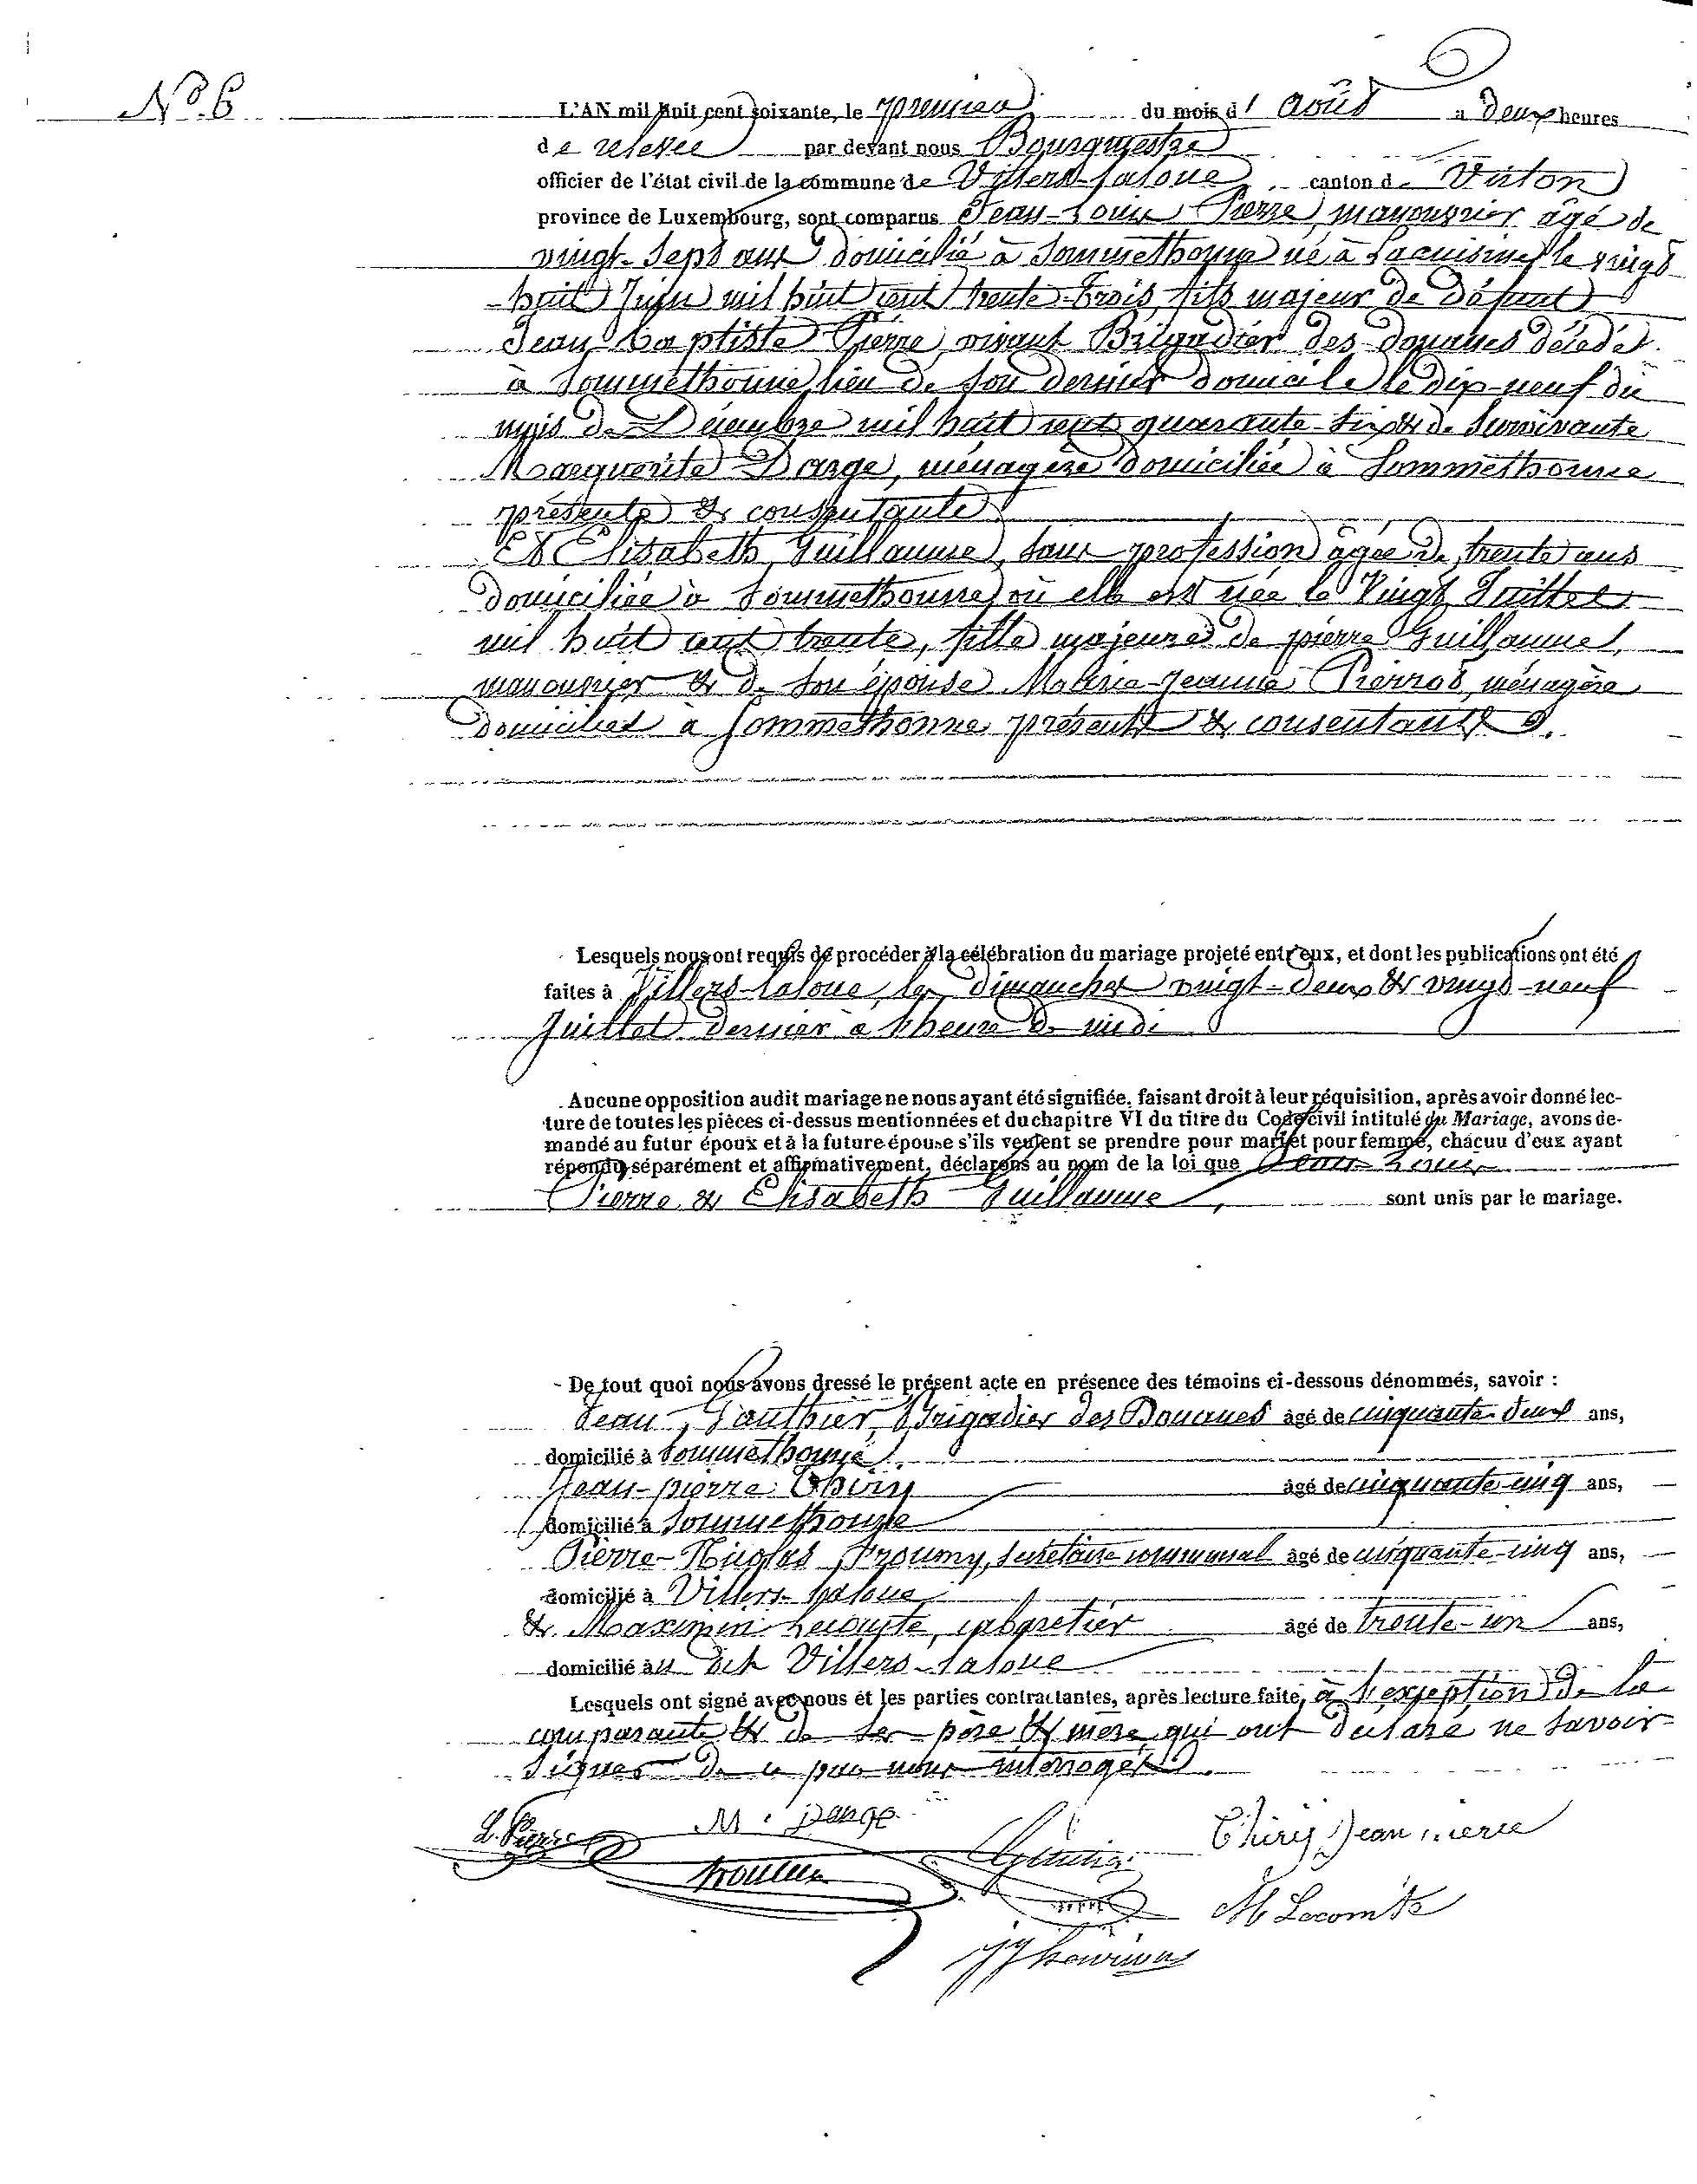 N° 6
L'AN mil huit cent soixante, le premier du mois d' Août a deux heures
de relevée par devant nous Bourgmestre
officier de l'état civil de la commune de Villers-Laloue canton de Virton
province de Luxembourg, sont comparus Jean-Louis Pierre, manouvrier âgé de
vingt-sept ans domicilié à Sommethonne né à Lacuisine le vingt
-huit Juin mil huit cent trente-trois, fils majeur de défunt
Jean Baptiste Pierre, vivant Brigadier des douanes décédé
à Sommethonne lieu de son dernier domicile le dix-neuf du
mois de Décembre mil huit cent quarante-six & de survivante
Marguerite Dange, ménagère domiciliée à Sommethonne
présente & consentante
Et Elisabeth Guillaume, sans profession âgée de trente ans
domiciliée à Sommethonne où elle est née le Vingt Juillet
mil huit cent trente, fille majeure de pierre Guillaume,
manouvrier & de son épouse Jeanne Pierrot, ménagère
domiciliés à Sommethonne présents & consentants.
Lesquels nous ont requis de procéder à la célébration du mariage projeté entr'eux, et dont les publications ont été
faites à Villers-Laloue, les dimanches vingt-deux & vingt-neuf
Juillet dernier à l'heure de midi
Aucune opposition audit mariage ne nous ayant été signifiée, faisant droit à leur réquisition, après avoir donné lec-
ture de toutes les pièces ci-dessus mentionnées et du chapitre VI du titre du Code civil intitulé du Mariage, avons de-
mandé au futur époux et à la future épouse s'ils veulent se prendre pour mari et pour femme, chacuu d'eux ayant
répondu séparément et affirmativement, déclarons au nom de la loi que Jean-Louis
Pierre & Elisabeth Guillaume, sont unis par le mariage.
De tout quoi nous avons dressé le présent acte en présence des témoins ci-dessous dénommés, savoir :
Jean Gauthier, Brigadier des Douanes âgé de cinquante-deux ans,
domicilié à Sommethonne
Jean-pierre Thiry âgé de cinquante-cinq ans,
domicilié à Sommethonne
Pierre-Nicolas Froumy, secrétaire communal âgé de cinquante-cinq ans,
domicilié à Villers-Laloue
& Maximin Lecomte, cabaretier âgé de trente-un ans,
domicilié au dit Villers-Laloue
Lesquels ont signé avec nous et les parties contractantes, après lecture faite, à l'exception de la
comparante & de ses père & mère qui ont déclaré ne savoir
signer de ce par nous interrogés.
L. Pierre M. Dange Thiry Jean Pierre
M Lecomte